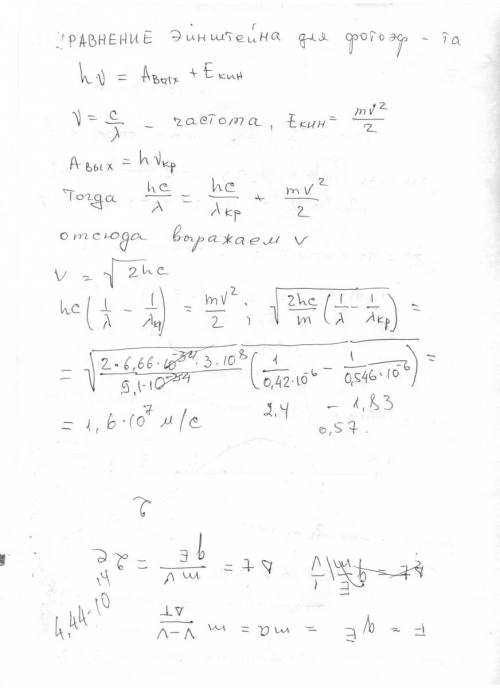 УРАВНЕНИЕ Эйнштейна для фотоэф-та
hν = Aвых + Eкин
ν = c/λ - частота, Eкин = mv²/2
Aвых = hνкр
Тогда hc/λ = hc/λкр + mv²/2
отсюда выражаем v
v = √2hc
hc(1/λ - 1/λкр) = mv²/2; √(2hc/m (1/λ - 1/λкр)) =
= √(2·6,66·10⁻³⁴·3·10⁸/9,1·10⁻³⁴ (1/0,42·10⁻⁶ - 1/0,546·10⁻⁶)) =
= 1,6·10⁷ м/с
2,4 - 1,83
0,57.
F = qE = ma = m v-v/ΔT
Δt = mv/qE = 2
4,44·10